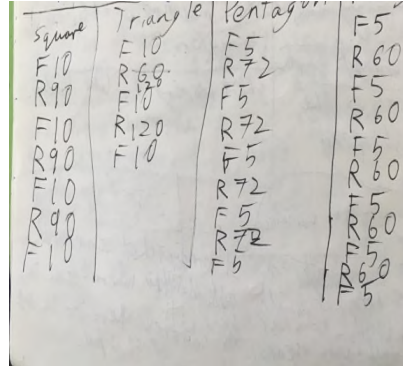 Square
F10
R90
F10
R90
F10
R90
F10
Triangle
F10
R60
F10
R120
F10
Pentagon
F5
R72
F5
R72
F5
R72
F5
R72
F5
F5
R60
F5
R60
F5
R60
F5
R60
F5
R60
F5